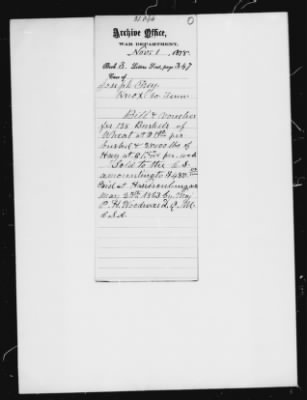 Archive Office,
WAR DEPARTMENT,
Nov. 1, 1878.
Book E. Letters Sent, page 347
Case of
Joseph
Knox Co Tenn
Bill & Voucher
for 128 Bushels of
Wheat at per
bushel & lbs of
Hay at per
Sold to the C.S.
amounting to $432
Paid at
May 25th 1863 by Maj
P. H. Woodward, Q.M.
C.S.A.